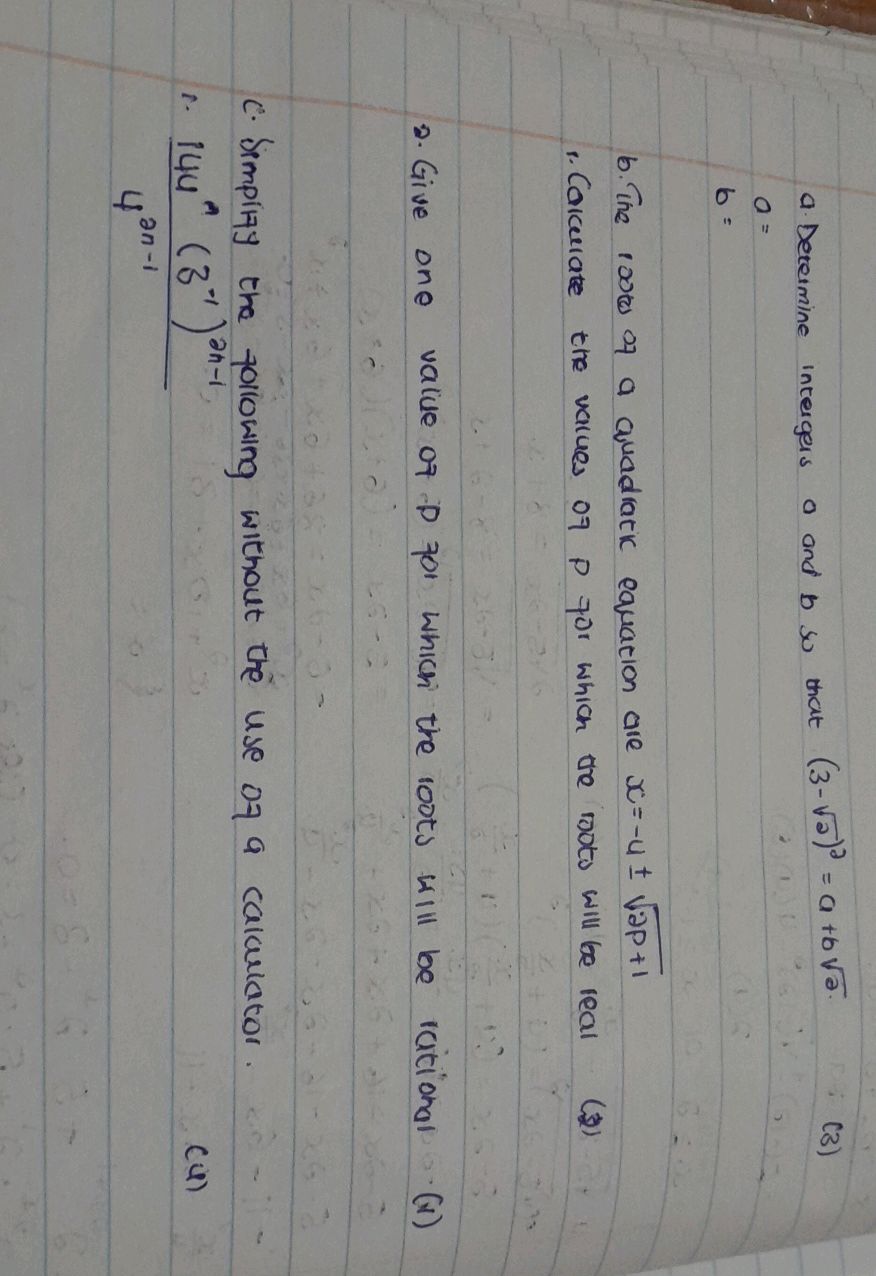 a. Determine intergers a and b so that (3-√2)² = a+b√2. (3)
a =
b =
b. The roots of a quadratic equation are x = -4 ± √2p+1
1. Calculate the values of p for which the roots will be real (2)
2. Give one value of p for which the roots will be rational (1)
C. Simplify the following without the use of a calculator.
1. 144ⁿ (3⁻¹)²ⁿ⁻¹ (4)
4²ⁿ⁻¹